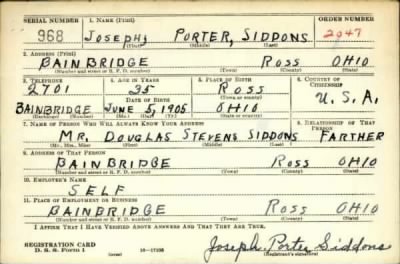 SERIAL NUMBER 1. NAME (Print) ORDER NUMBER
968 JOSEPH, PORTER, SIDDONS 2047
(First) (Middle) (Last)
2. ADDRESS (Print)
BAINBRIDGE ROSS OHIO
(Number and street or R. F. D. number) (Town) (County) (State)
3. TELEPHONE 4. AGE IN YEARS 5. PLACE OF BIRTH 6. COUNTRY OF CITIZENSHIP
2701 35 ROSS
DATE OF BIRTH (Town or county)
BAINBRIDGE JUNE 5, 1905 OHIO U.S.A.
(Exchange) (Mo.) (Day) (Yr.) (State or country)
7. NAME OF PERSON WHO WILL ALWAYS KNOW YOUR ADDRESS 8. RELATIONSHIP OF THAT PERSON
MR. DOUGLAS STEVENS SIDDONS FARTHER
(Mr., Mrs., Miss) (First) (Middle) (Last)
9. ADDRESS OF THAT PERSON
BAINBRIDGE ROSS OHIO
(Number and street or R. F. D. number) (Town) (County) (State)
10. EMPLOYER'S NAME
SELF
11. PLACE OF EMPLOYMENT OR BUSINESS
BAINBRIDGE ROSS OHIO
(Number and street or R. F. D. number) (Town) (County) (State)
I AFFIRM THAT I HAVE VERIFIED ABOVE ANSWERS AND THAT THEY ARE TRUE.
REGISTRATION CARD
D. S. S. Form 1 Joseph Porter Siddons
(Registrant's signature)